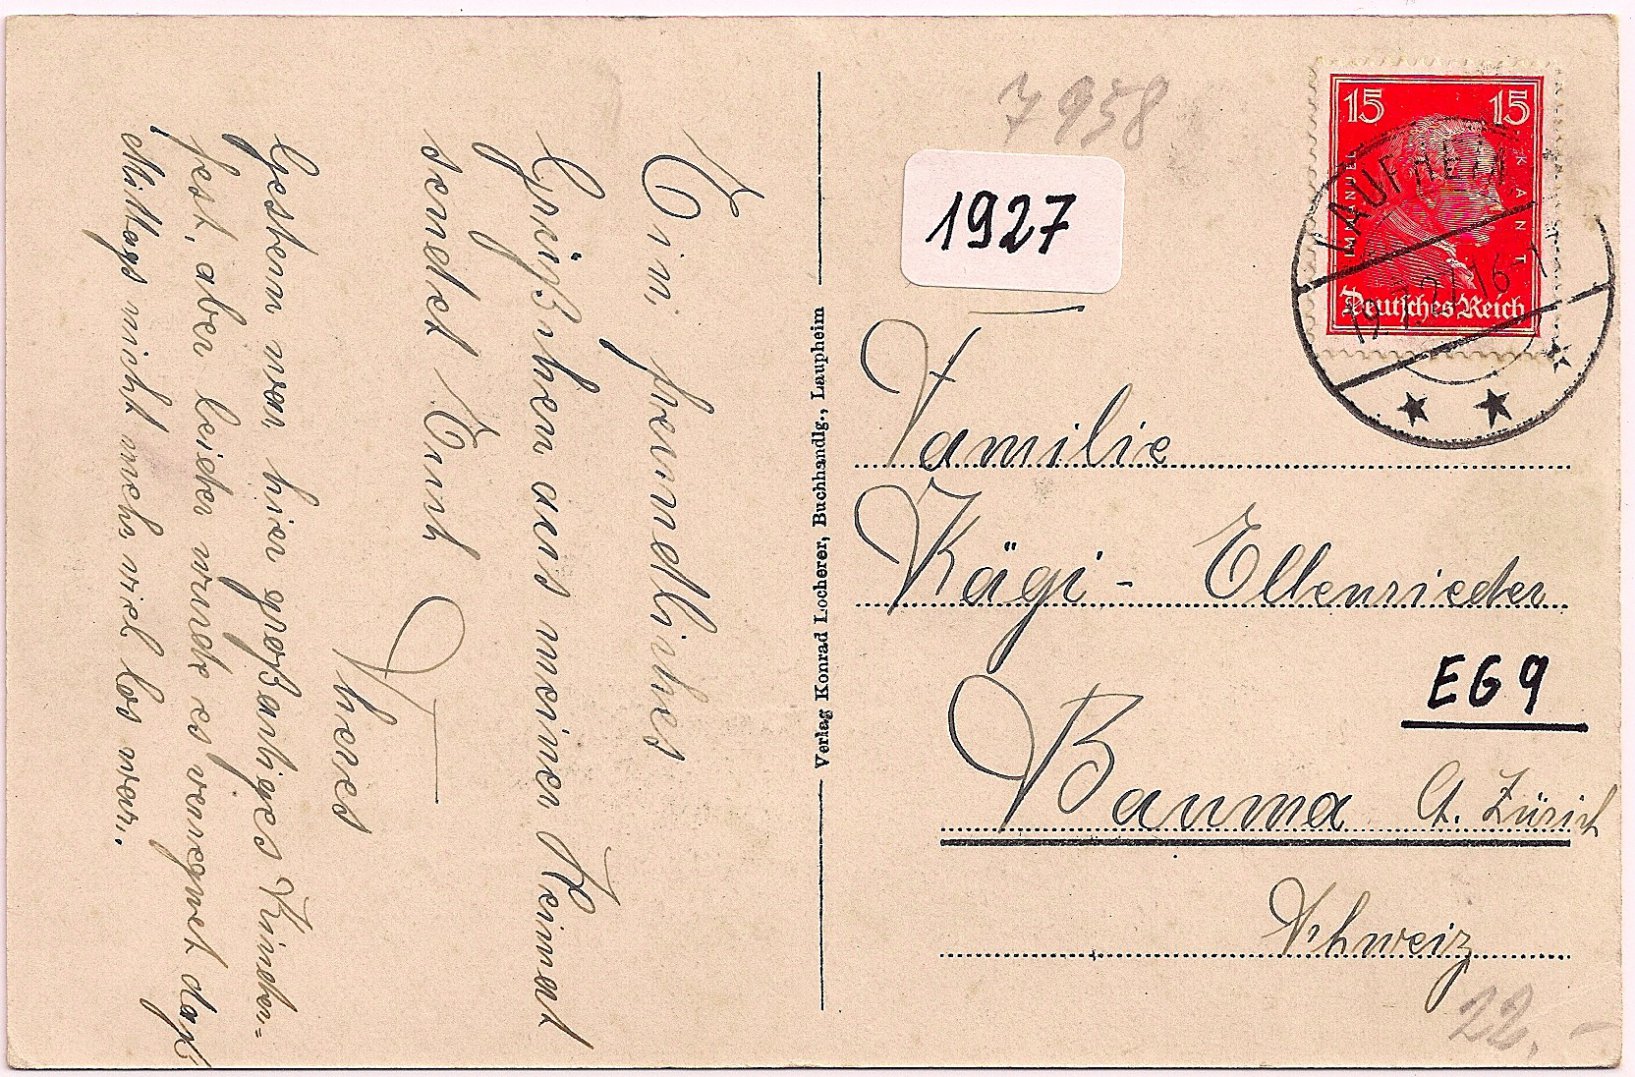 Ein freundliches
Grüßchen aus meiner Heimat
sendet Euch
Theres
Gestern war hier großartiges Kinder=
fest, aber leider wurde es verregnet daß
Mittags nicht mehr viel los war.
Verlag Konrad Locherer, Buchhandlg., Laupheim
7958
1927
15 15
IMMANUEL KANT
Deutsches Reich
LAUPHEIM
19.7.27.16-1
Familie
Kägi - Ellenrieder
EG9
Bauma Ct. Zürich
Schweiz
22.-